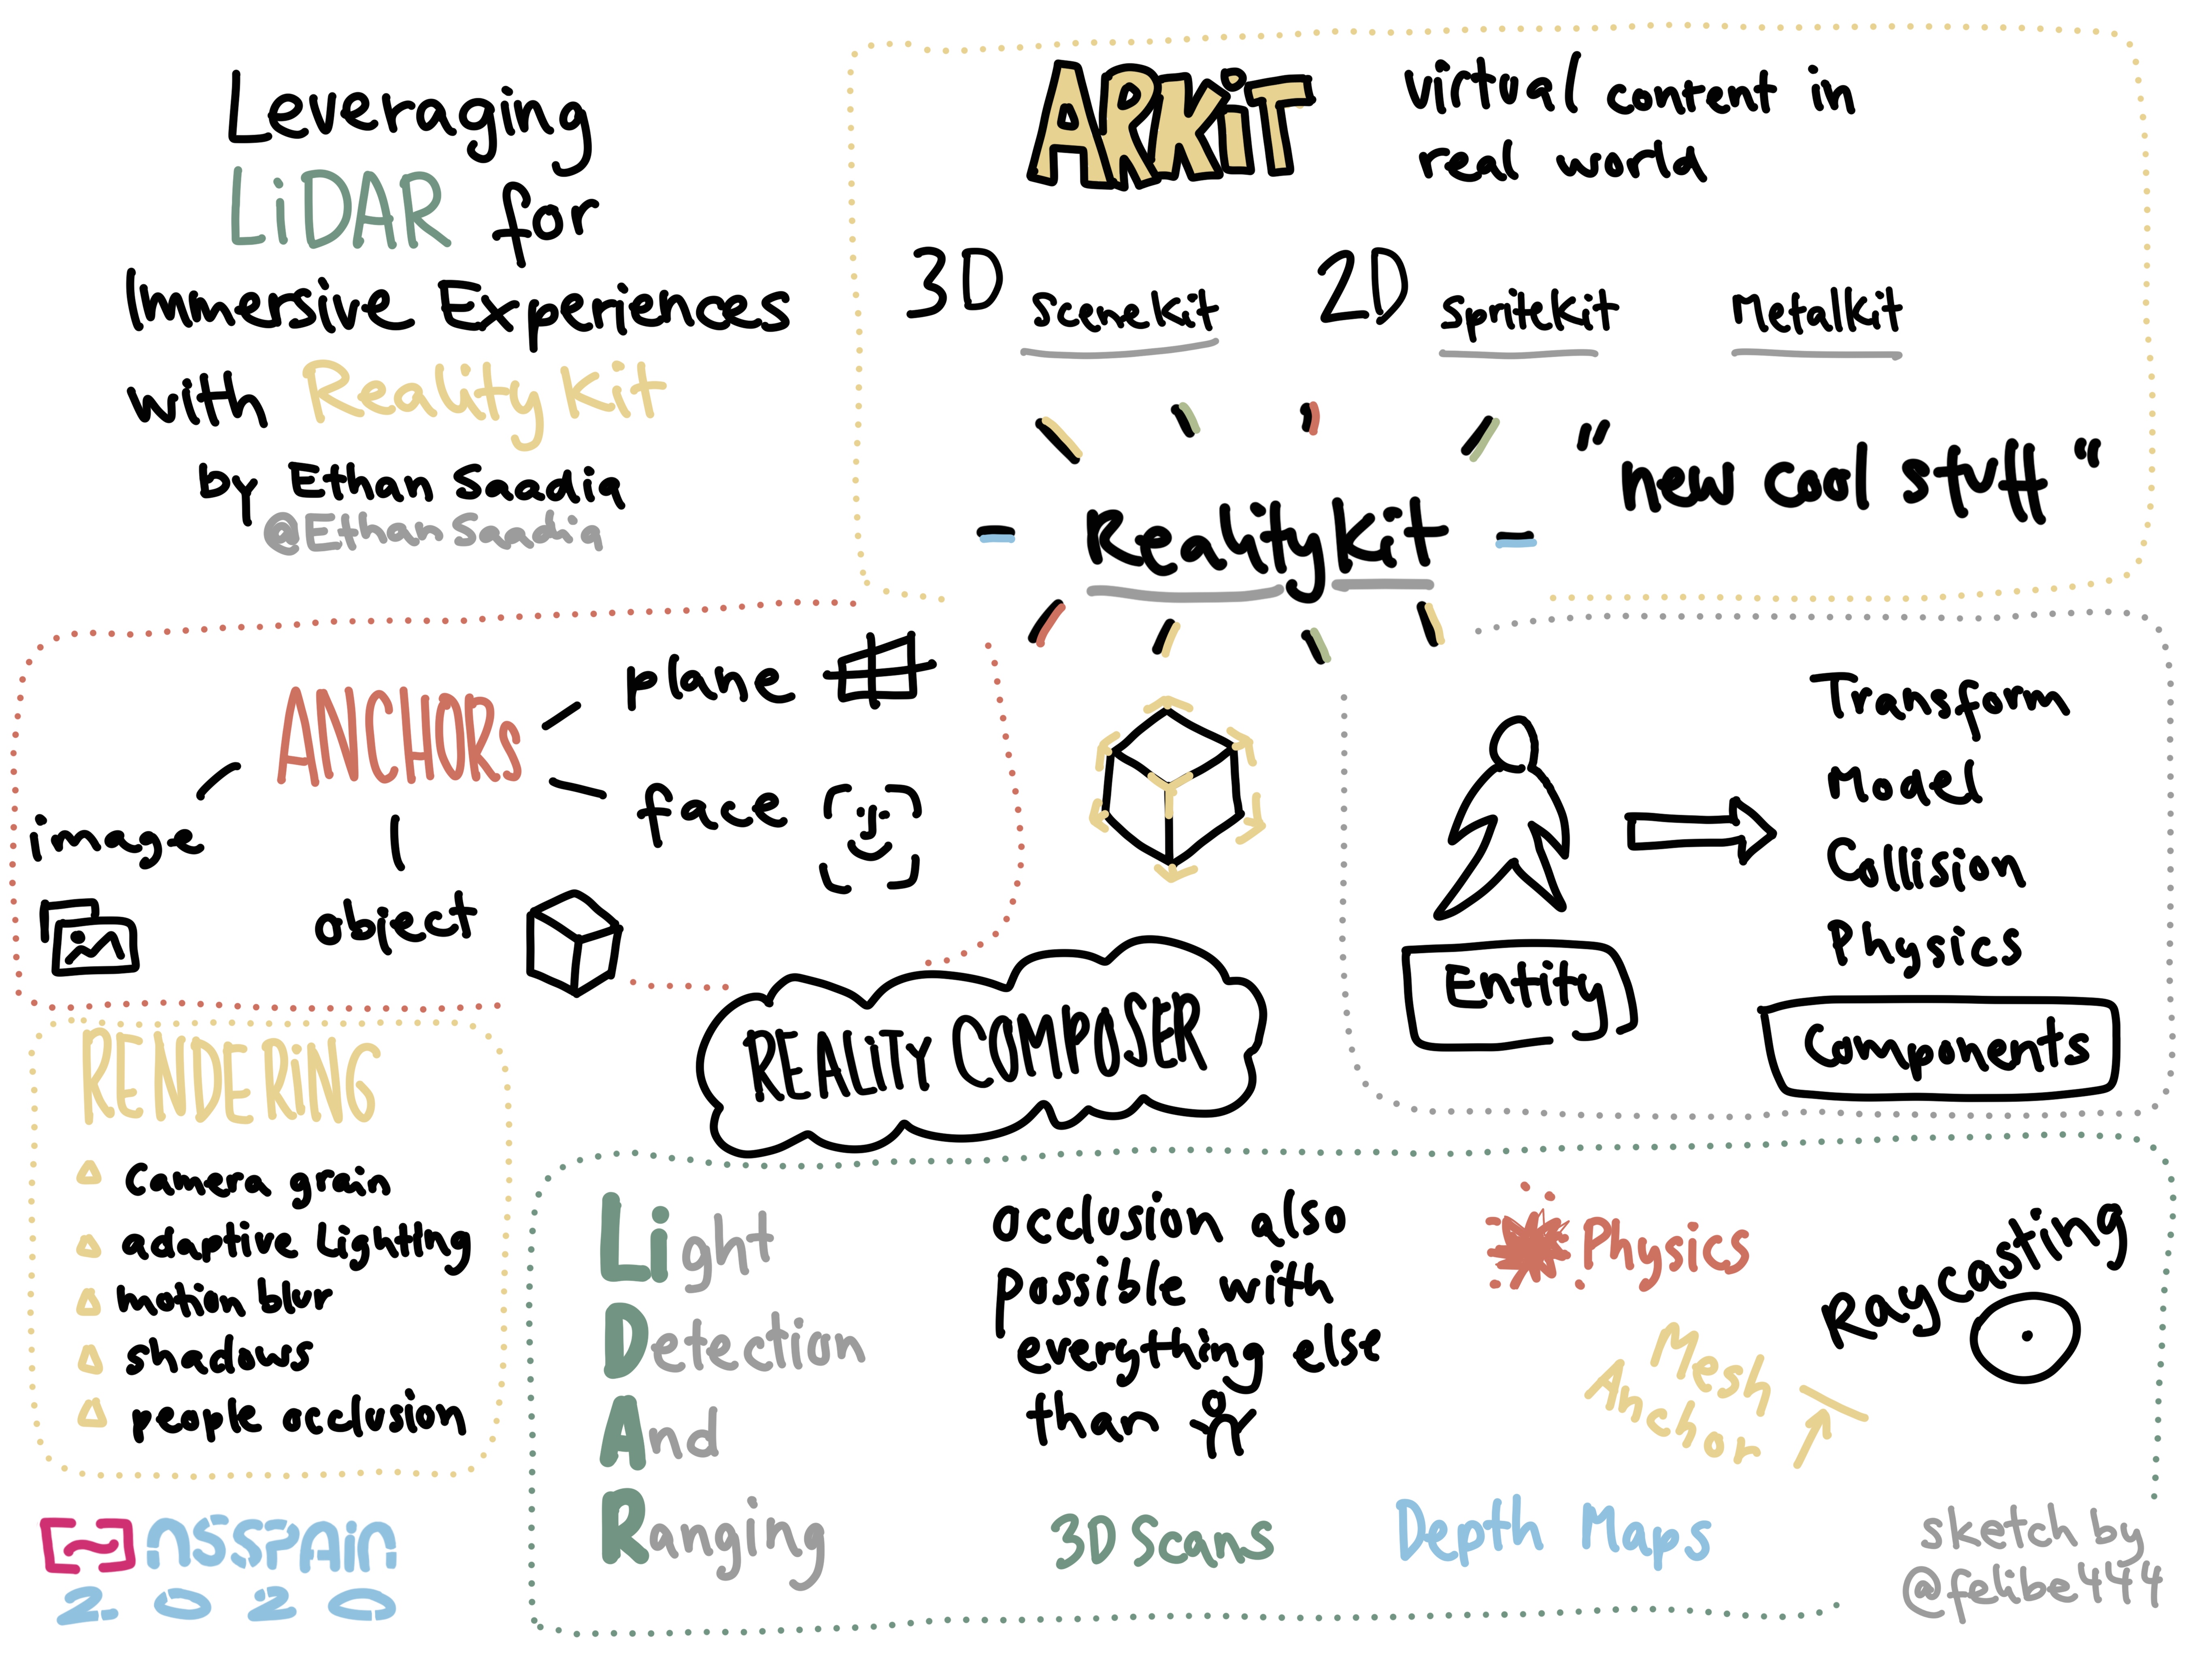 Leveraging
LiDAR for
Immersive Experiences
with Reality Kit
by Ethan Saadia
@EthanSaadia
ARKiT
virtual content in
real world
3D SceneKit
2D SpriteKit
MetalKit
RealityKit
"new cool stuff"
ANCHORs
plane
face
image
object
REALiTY COMPOSER
Entity
Transform
Model
Collision
Physics
Components
RENDERiNG
Camera grain
adaptive Lighting
motion blur
shadows
people occlusion
Light
Detection
And
Ranging
occlusion also
possible with
everything else
than
Physics
Raycasting
Mesh
Anchor
3D Scans
Depth Maps
NSSPAiN
2020
sketch by
@felibe444